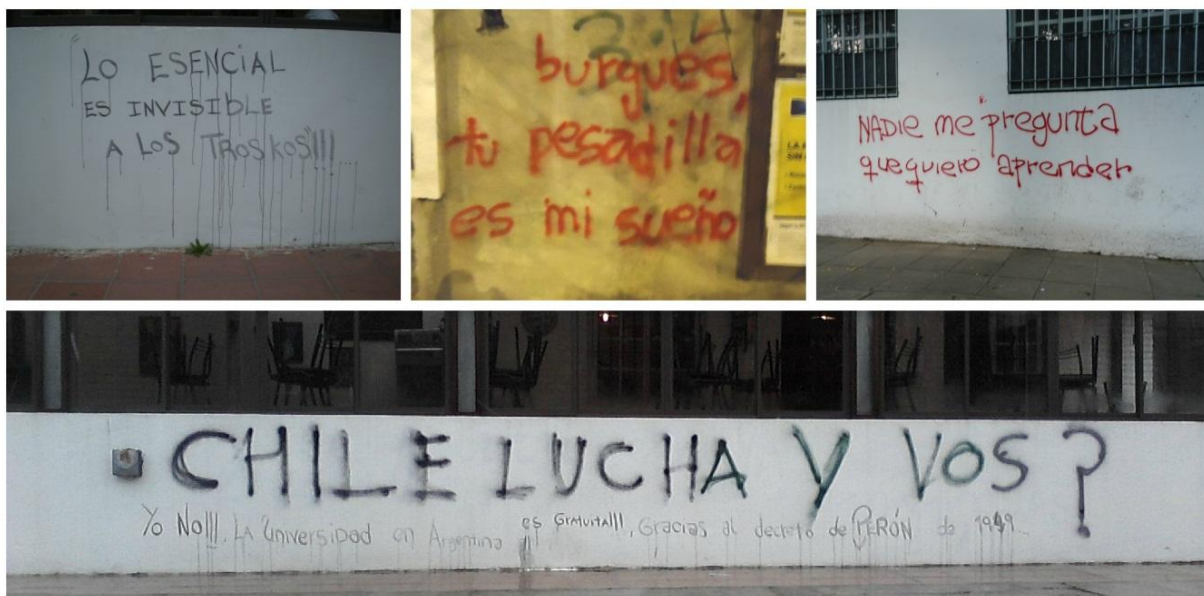 "LO ESENCIAL
ES INVISIBLE
A LOS TROSKOS"!!!...
burgues,
tu pesadilla
es mi sueño
NADIE me pregunta
que quiero aprender
CHILE LUCHA Y VOS?
Yo No!!!. LA Universidad en Argentina es GRATUITA!!!, Gracias al decreto de PERÓN de 1949...